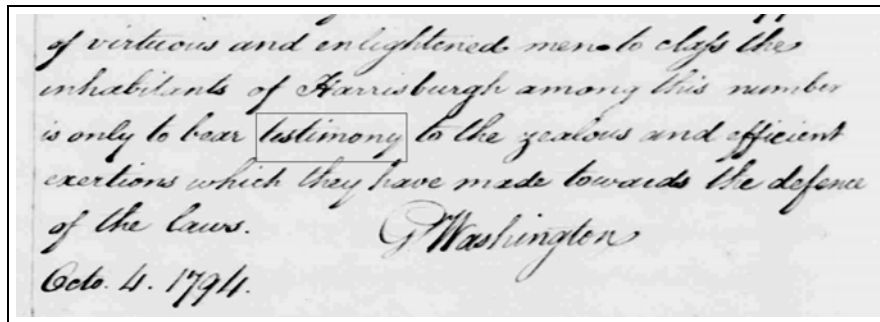 of virtuous and enlightened men to claſs the
inhabitants of Harrisburgh among this number
is only to bear testimony to the zealous and efficient
exertions which they have made towards the defence
of the laws.
G Washington
Octo. 4. 1794.